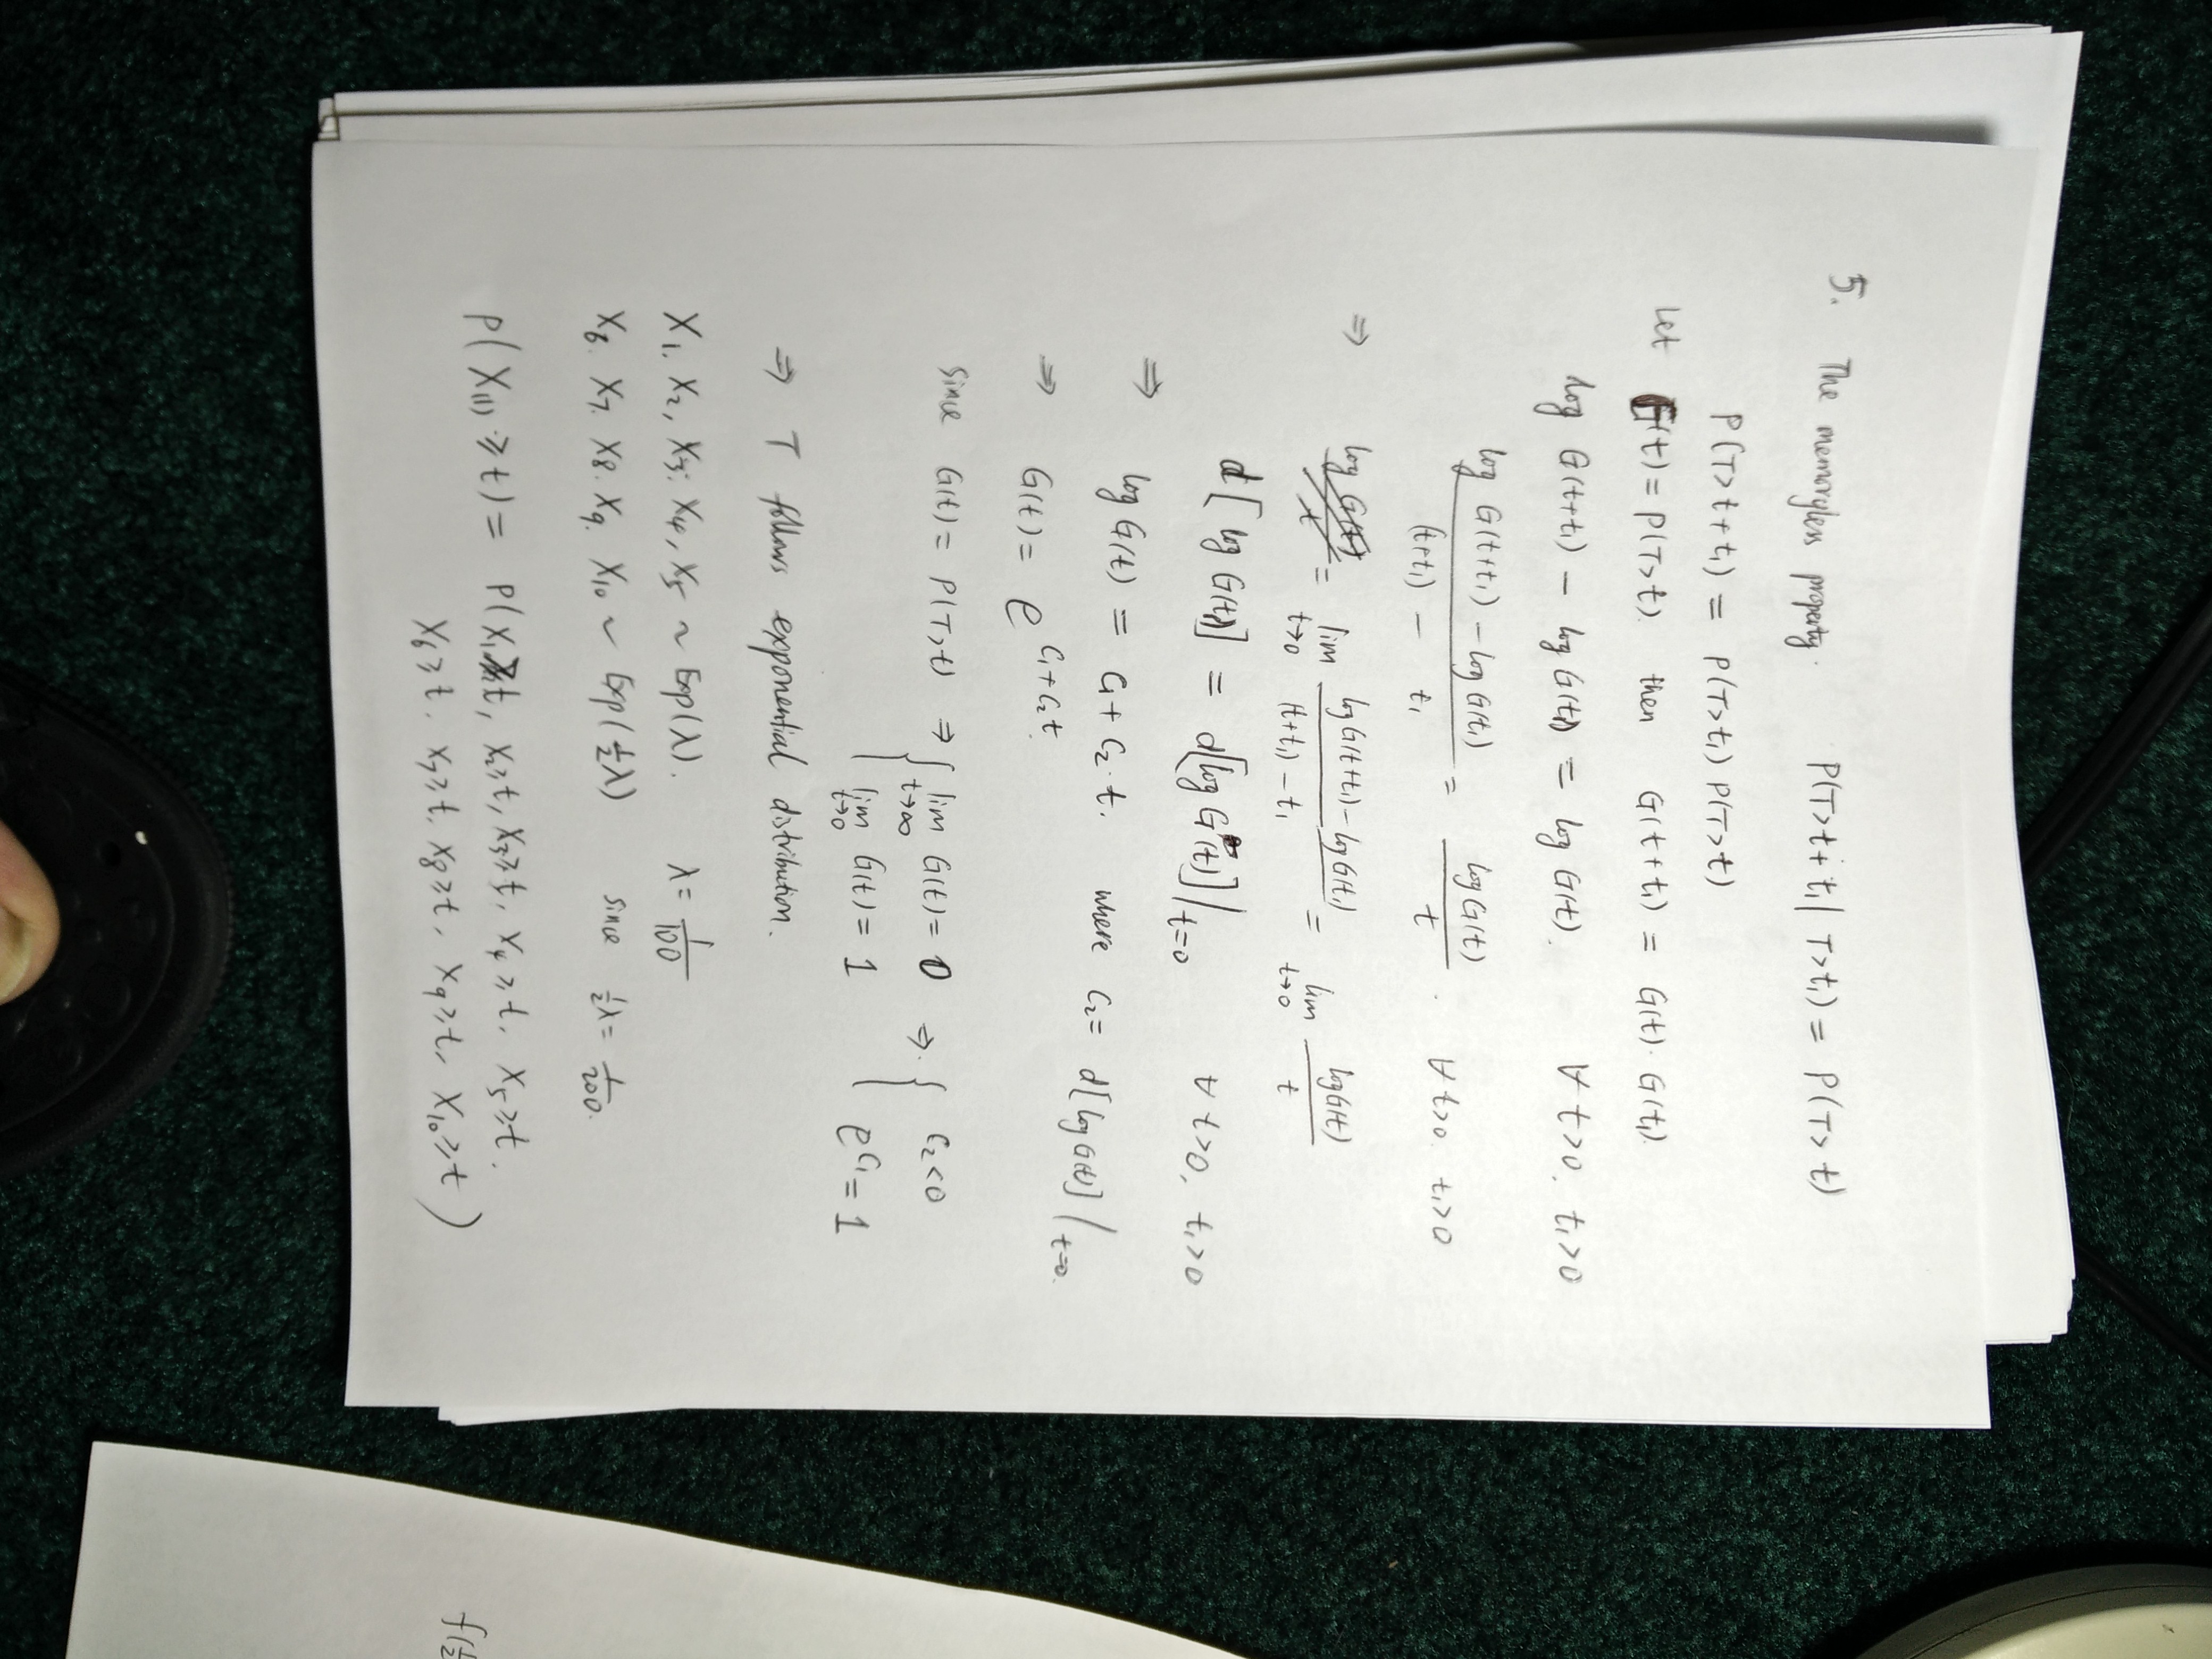 5. The memoryless property. P(T>t+t₁| T>t₁) = P(T>t)
P(T>t+t₁) = P(T>t₁) P(T>t)
Let G(t) = P(T>t). then G(t+t₁) = G(t)·G(t₁).
log G(t+t₁) - log G(t₁) = log G(t). ∀ t>0, t₁>0
(log G(t+t₁) - log G(t₁)) / ((t+t₁) - t₁) = log G(t) / t. ∀ t>0. t₁>0
⇒ = lim_{t→0} (log G(t+t₁) - log G(t₁)) / ((t+t₁) - t₁) = lim_{t→0} log G(t) / t
d[log G(t₁)] = d[log G(t)]|_{t=0} ∀ t>0, t₁>0
⇒ log G(t) = C₁ + C₂·t. where C₂ = d[log G(t)]|_{t=0}.
⇒ G(t) = e^{C₁+C₂t}.
since G(t) = P(T>t) ⇒ { lim_{t→∞} G(t) = 0 ⇒ { C₂<0
lim_{t→0} G(t) = 1 e^{C₁} = 1
⇒ T follows exponential distribution.
X₁, X₂, X₃, X₄, X₅ ~ Exp(λ). λ = 1/100
X₆. X₇. X₈. X₉. X₁₀ ~ Exp(½λ) since ½λ = 1/200.
P( X₍₁₎ ≥ t) = P( X₁≥t, X₂≥t, X₃≥t, X₄≥t, X₅≥t.
X₆≥t. X₇≥t. X₈≥t, X₉≥t, X₁₀≥t )